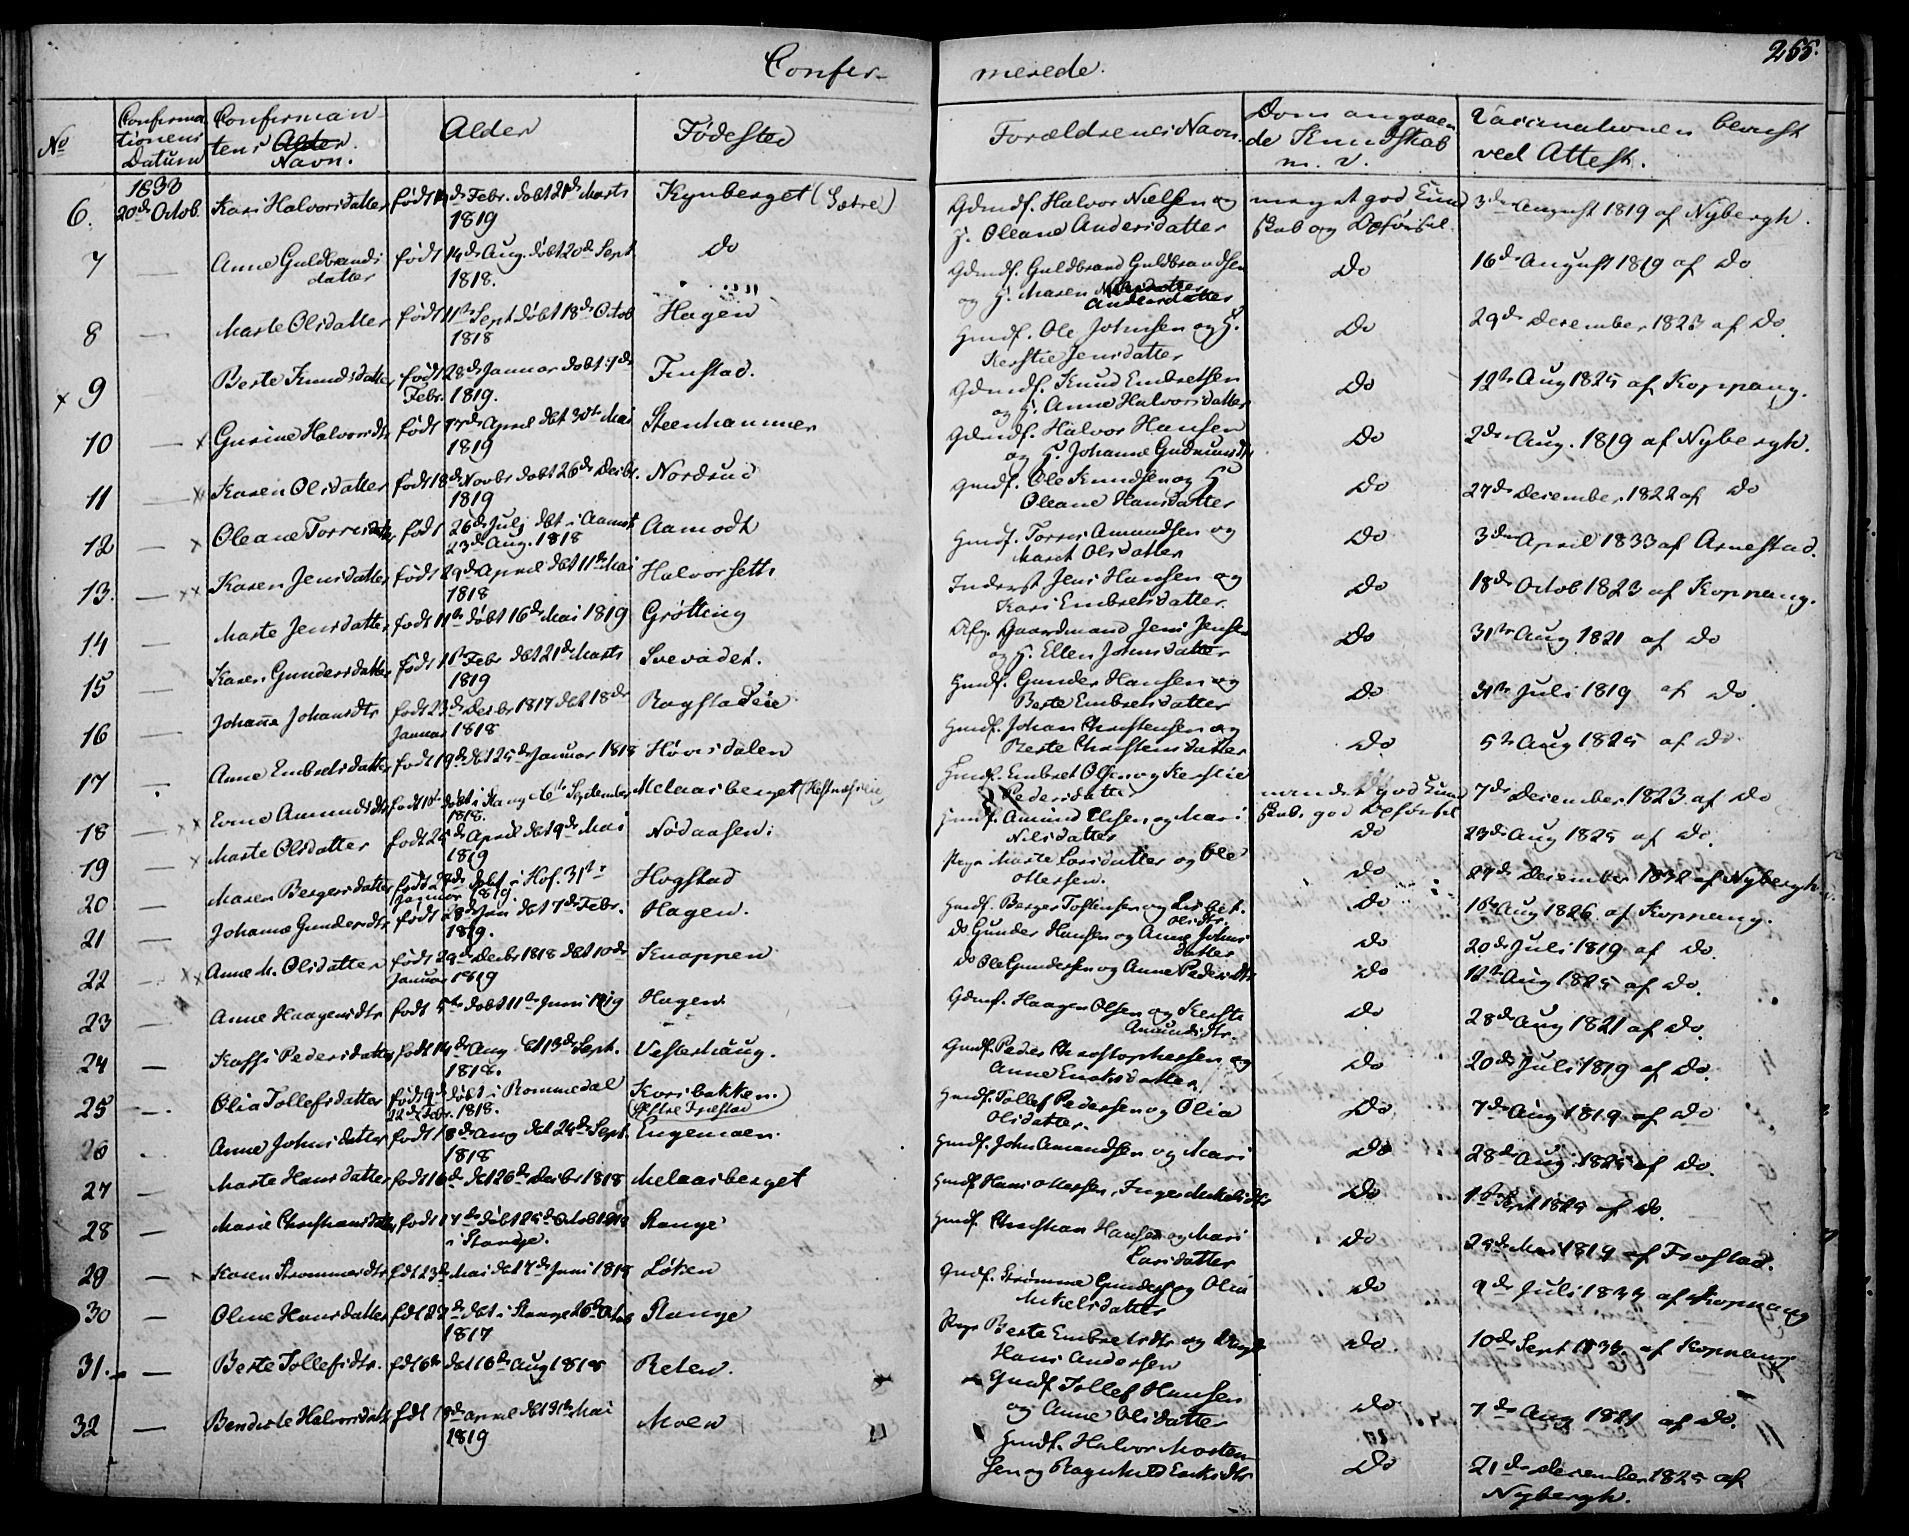 Confir-
merede.
255.
No
Confirma
tionens
Datum
Confirman
tens Alder
Navn.
Alder
Fødested
Forældrenes Navn.
Dom angaaen
de Kundskab
m. v.
Vaccinationen bevist
ved Attest.
6. 1833 20de Octob. Kari Halvorsdatter født de Febr. døbt 21de Marts 1819 Kynberget (Sætre) Gdmd. Halvor Nielsen og H. Oleane Andersdatter meget god Kund skab og Opførsel 3die August 1819 af Nybergh.
7 — Anne Guldbrands datter født 14de Aug. døbt 20de Sept 1818. Do Gdmd. Guldbrand Guldbrandsen og H. Maren Andersdatter Do 16de August 1819 af Do
8 — Marte Olsdatter født 11te Sept døbt 18de Octob 1818 Hagen Gmdf. Ole Johnsen og H. Kerstie Jensdatter Do 29de December 1823 af Do
x 9 Berte Knudsdatter født 28de Januar døbt 7de Febr. 1819. Finstad. Gdmd. Knud Embretsen og H. Anne Halvorsdatter Do 12te Aug 1825 af Koppang.
10 — x Gurine Halvorsdtr født 17de April dbt 30te Mai 1819 Steenhammer Gdmd. Halvor Hansen og H. Johanne Gudmundsdtr Do 2den Aug. 1819 af Nybergh.
11 — x Karen Olsdatter født 18de Novbr døbt 26de Decbr. 1819 Nordsud Gmdf. Ole Knudsen og H Oleane Hansdatter Do 27de December 1822 af Do
12 — x Oleane Torresdatter født 26de Juli dbt i Aamot 23de Aug. 1818 Aamodt Gmdf. Torres Amundsen og Marit Olsdatter Do 3die April 1833 af Arnestad.
13. — xx Karen Jensdatter født 29de April dbt 11te Mai 1818 Halvorseth Inderst Jens Hansen og Kari Embretsdatter Do 18de Octob 1823 af Koppang.
14 — Marte Jensdatter født 11te døbt 16de Mai 1819 Grøtting Afg. Gaardmand Jens Jensen og H. Ellen Johnsdatter Do 31te Aug 1821 af Do
15 — Karen Gundersdatter født 1ste Febr dbt 21de Marts 1819 Svevadet. Gmdf. Gunder Hansen og Berte Embretsdatter Do 31te Juli 1819 af Do
16 — Johanne Johansdtr født 23de Decbr 1817 dbt 18de Januar 1818 Rogstadeie Gmdf. Johan Christensen og Berte Christensdatter Do 5te Aug 1825 af Do
17 Anne Embretsdatter født 19de dbt 25de Januar 1818 Hövisdalen Gmdf. Embret Olsen og Kerstie Pedersdatter 7de December 1823 af Do
18 — xx Amundsdtr født 10de døbt i Stange 6te September 1818. Melaasberget Gmdf. Amund Olsen og Mari Nilsdatter Do 23de Aug 1825 af Do.
19 — x Marte Olsdatter født 25de April dbt 9de Mai 1819 Nødaasen. Pige Marte Larsdatter og Ole Ottersen. Do 27de December 1832 af Nybergh
20 — Maren Bergersdatter født 27de døbt i Hof. 31te Januar 1819 Hogstad Gmdf. Berger Tostensen og Lisbet Olsdtr. Do 16te Aug 1826 af Koppang.
21 — Johanne Gundersdtr født 28de Jan dbt 7de Febr. 1819. Hagen. Do Gunder Hansen og Anne Johns datter Do 20de Juli 1819 af Do.
22 — xx Anne M. Olsdatter født 29de Decbr 1818 dbt 10de Januar 1819 Knappen Do Ole Gundersen og Anne Pedersdtr Do 12te Aug 1825 af Do.
23 — Anne Haagensdtr født 5te døbt 11te Juni 1819 Hagen Gdmd. Haagen Olsen og Kersti Amundsdtr. Do 28de Aug 1821 af Do.
24 — Kaffi Pedersdatter født 14de Aug dbt 13de Sept. 1818. Vesterhaug. Gmdf. Peder Christophersen og Anne Ericksdatter Do 20de Juli 1819 af Do.
25 — Olia Tollefsdatter født 9de døbt i Rommedal 22de Febr. 1818. Korsbakken. (Østre Fræstad) Gmdf. Tollef Pedersen og Olia Olsdatter. Do 7de Aug 1819 af Do
26 Anne Johnsdatter født 18de Aug dbt 24de Sept. 1818 Engemoen. Gmdf. John Amundsen og Mari Do 28de Aug. 1825 af Do.
27 — Marte Hansdatter født 16de dbt 26de Decbr 1818 Melaasberget Gmdf. Hans Ottersen, Inger Mikelsdtr Do 1ste Sept 1825 af Do.
28 — Marie Christiansdatter født 17de døbt 25de Octob 1818 i Stange. Stange Gmdf. Christian Hansen og Mari Larsdatter Do 25de Mai 1819 af Frostad.
29 — x Karen Strømmesdtr født 23de Mai dbt 17de Juni 1818 Løken Gmdf. Strømme Gundersen og Olia Mikelsdatter Do 9de Juli 1833 af Koppang
30 — Oline Hansdatter født 22de dbt i Stange 26de Octob 1817 Stange Pige Berte Embretsdtr og Ungk. Hans Andersen Do. 10de Sept 1833 af Koppang
31. — Berte Tollefsdtr. født 6te dbt 16de Aug 1818 Reten. Gmdf Tollef Hansen og Anne Olsdatter Do 7de Aug 1821 af Do.
32 — Bendicte Halvorsdatter født 18de april dbt 31te Mai 1819 Moen Gmdf. Halvor Morten sen og Ragnhild Ericksdtr Do 21de December 1825 af Nybergh.